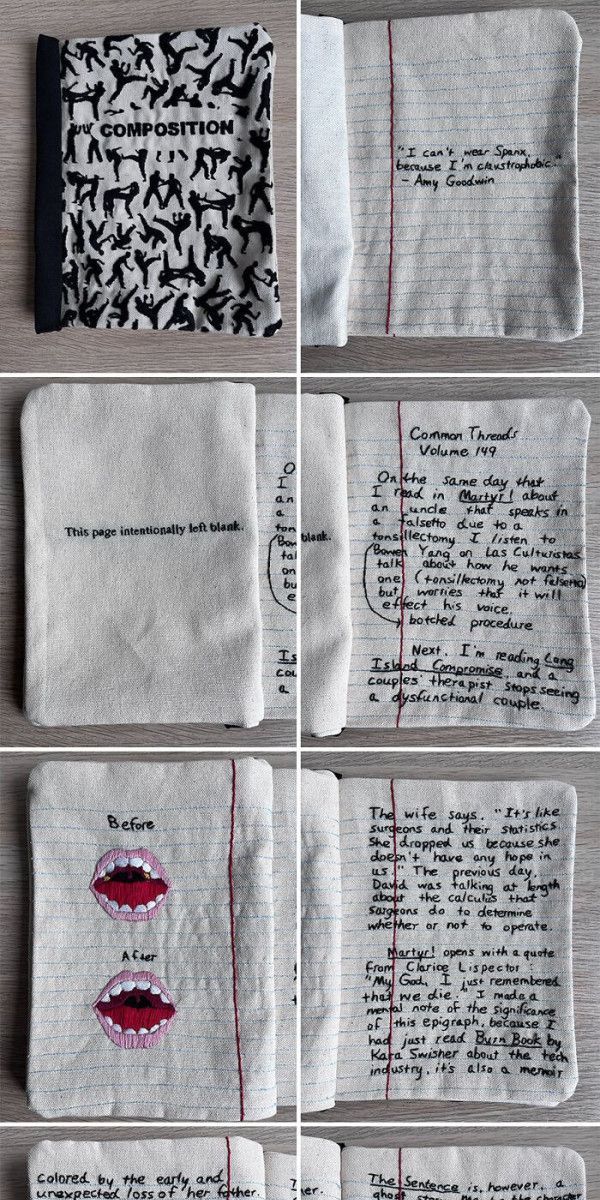 COMPOSITION
"I can't wear Spanx,
because I'm claustrophobic."
- Amy Goodwin
This page intentionally left blank.
O
I
an
a
ton
Bow
tal
on
bu
e
Is
cou
a
blank.
Common Threads
Volume 149
On the same day that
I read in Martyr! about
an uncle that speaks in
a falsetto due to a
tonsillectomy I listen to
Bowen Yang on Las Culturistas
talk about how he wants
one (tonsillectomy not falsetto)
but worries that it will
effect his voice.
botched procedure
Next, I'm reading Long
Island Compromise, and a
couples' therapist stops seeing
a dysfunctional couple.
Before
After
The wife says, "It's like
surgeons and their statistics.
She dropped us because she
doesn't have any hope in
us." The previous day,
David was talking at length
about the calculus that
surgeons do to determine
whether or not to operate.
Martyr! opens with a quote
from Clarice Lispector:
"My God, I just remembered
that we die." I made a
mental note of the significance
of this epigraph, because I
had just read Burn Book by
Kara Swisher about the tech
industry, it's also a memoir
colored by the early and
unexpected loss of her father.
er.
The Sentence is, however, a